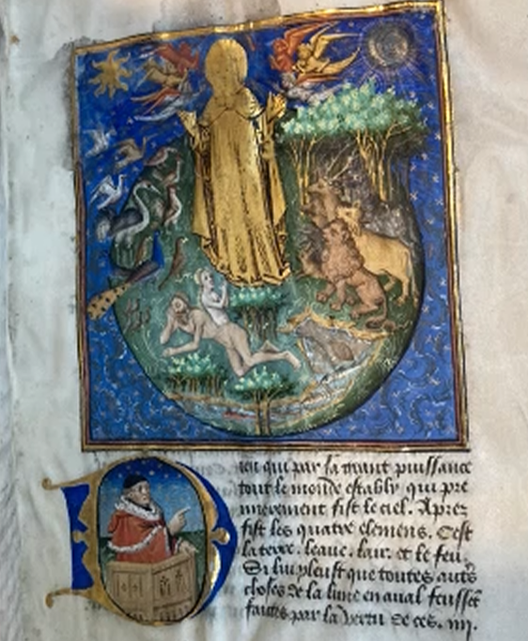 Dieu qui par sa grant puissance
tout le monde establý qui pre
mierement fist le ciel. Aprez
fist les quatre elemens. Cest
la terre. leaue. lair. et le feu.
Si luy pleust que toutes autres
choses de la lune en aual feussent
faites par la vertu de ces. iiij.